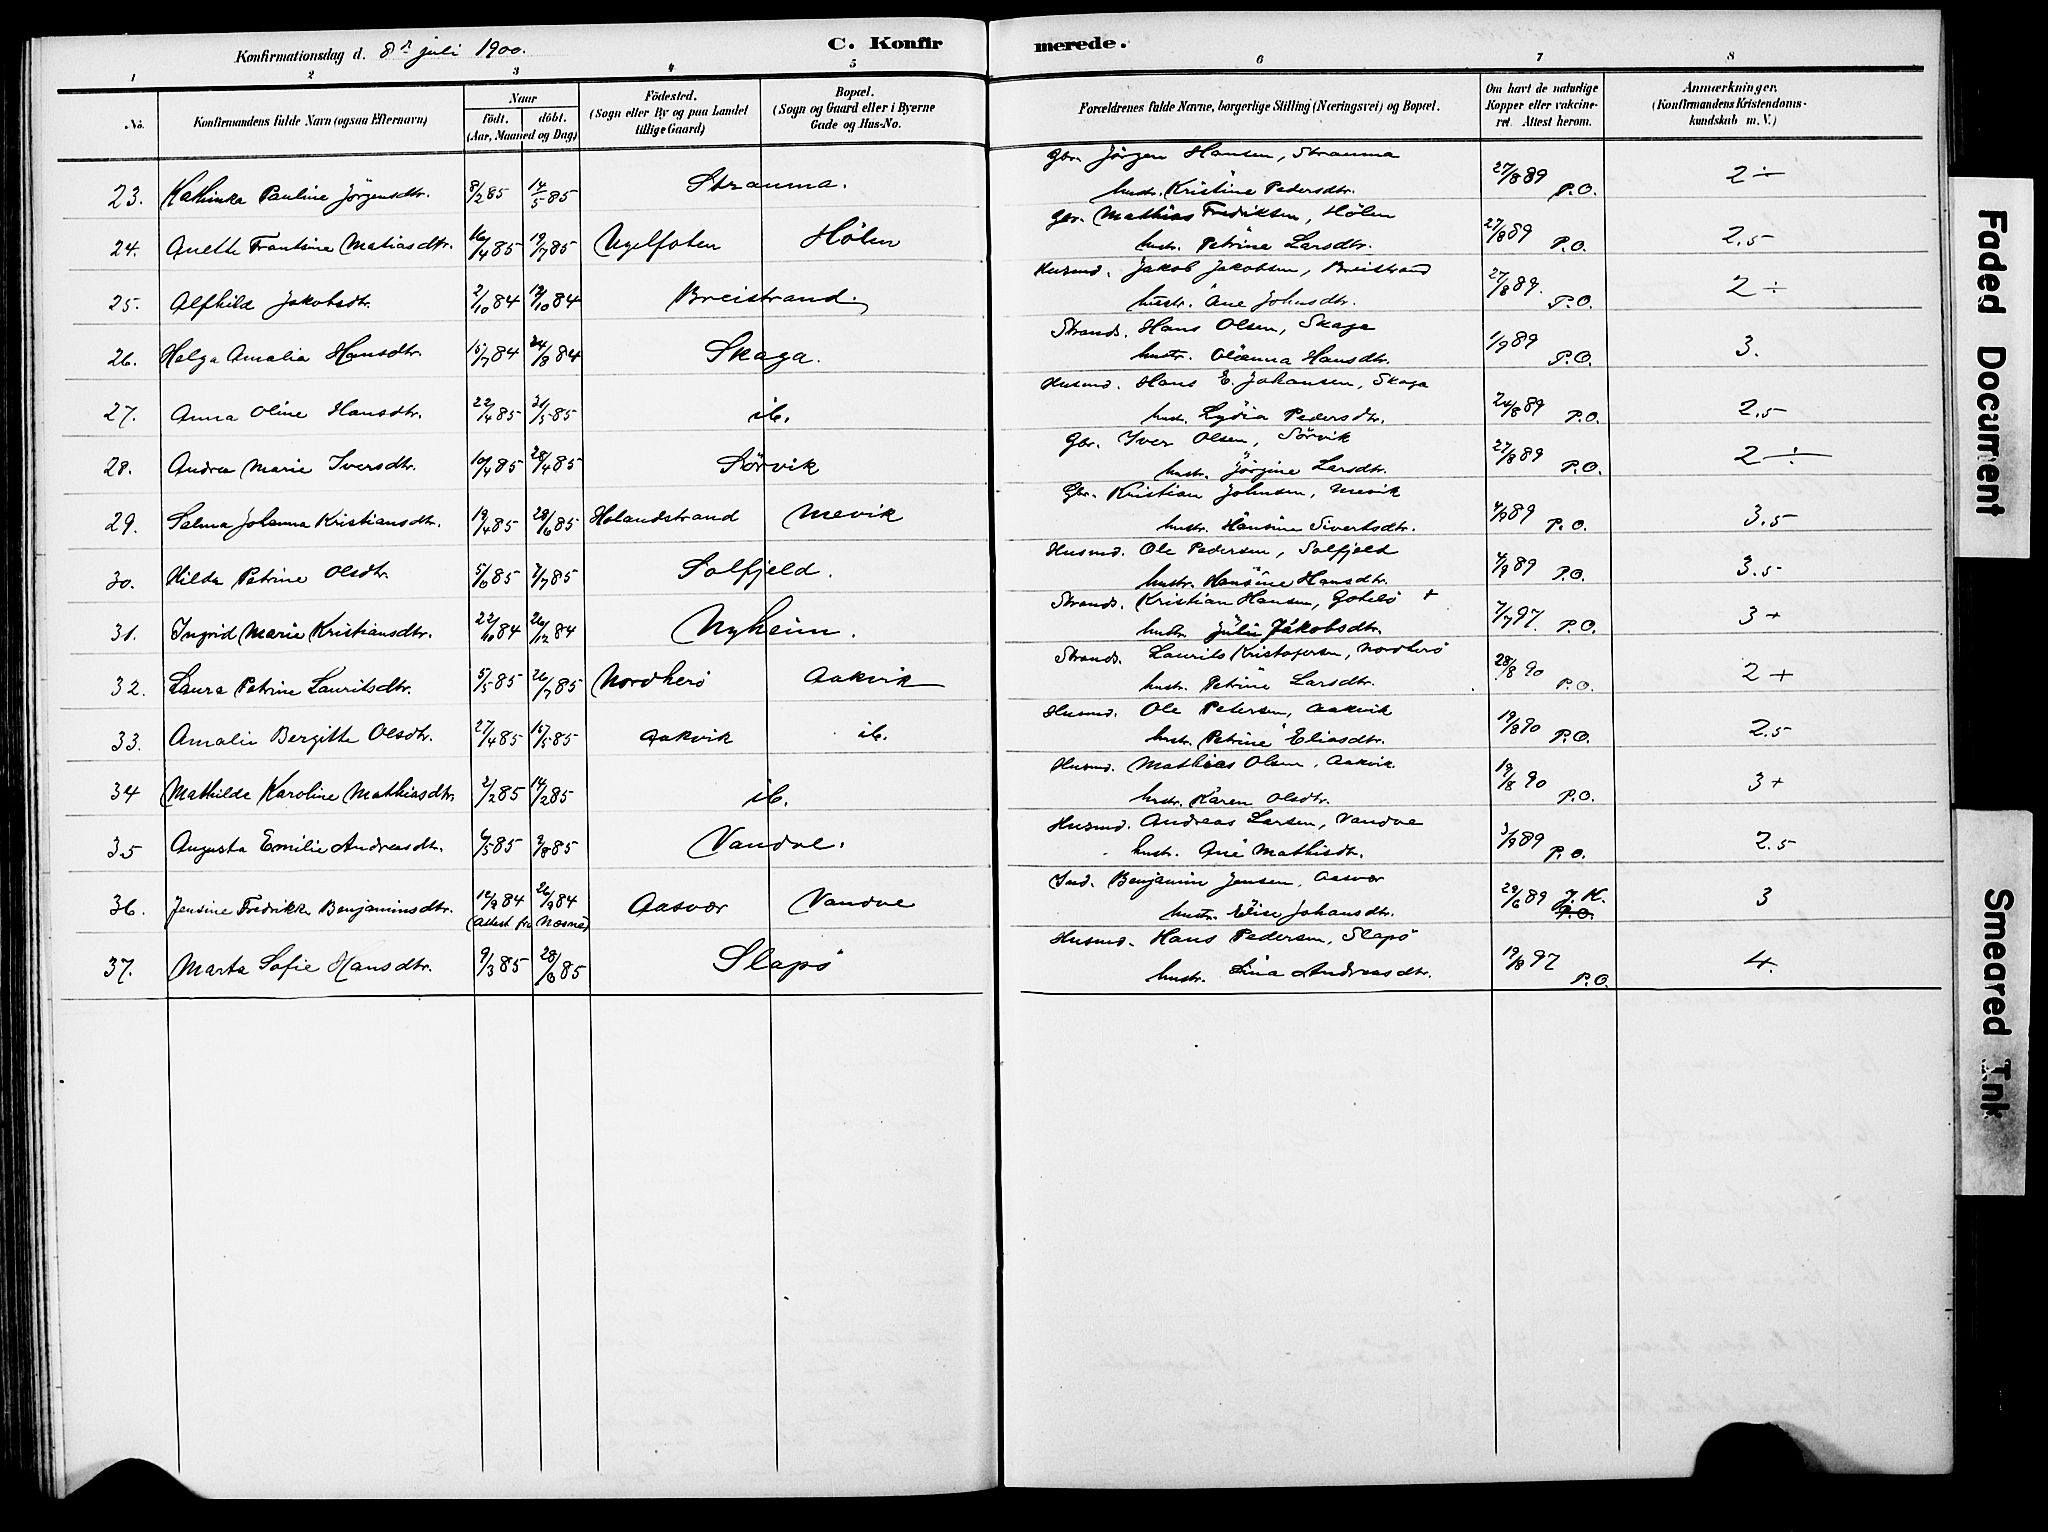 Konfirmationsdag d. 8de juli 1900.
C. Konfirmerede.
1 2 3 4 5 6 7 8
No. Konfirmandens fulde Navn (ogsaa Efternavn) Naar født. døbt. (Aar, Maaned og Dag) Fødested. (Sogn eller By og paa Landet tillige Gaard) Bopæl. (Sogn og Gaard eller i Byerne Gade og Hus-No. Forældrenes fulde Navne, borgerlige Stilling (Næringsvei) og Bopæl. Om havt de naturlige Kopper eller vakcineret. Attest herom. Anmærkninger. (Konfirmandens Kristendomskundskab m. V.)
Gbr. Jørgen Hansen, Strauma
23. Kathinka Pauline Jørgensdtr. 8/2 85 14/5 85 Strauma. hustr. Kristine Pedersdtr. 27/8 89 P.O. 2 ÷
Gbr. Mathias Fredriksen, Hølen
24. Anette Frantsine Matiasdtr. 16/4 85 19/7 85 Nyelfoten Hølen hustr. Petrine Larsdtr. 27/8 89 P.O. 2.5
Husmd. Jakob Jakobsen, Breistrand
25. Alfhild Jakobsdtr. 2/10 84 12/10 84 Breistrand. hustr. Ane Johnsdtr. 27/8 89. P.O. 2 ÷
Strands. Hans Olsen, Skaga
26. Helga Amalia Hansdtr. 15/7 84 24/8 84 Skaga. hustr. Olianna Hansdtr. 1/9 89 P.O. 3.
Husmd. Hans E. Johansen, Skaga
27. Anna Oline Hansdtr. 22/4 85 31/5 85 ib. hustr. Lydia Pedersdtr. 24/8 89 P.O. 2.5
Gbr. Iver Olsen, Sørvik
28. Andrea Marie Iversdtr. 10/4 85 28/4 85 Sørvik hustr. Jørgine Larsdtr. 27/8 89 P.O. 2 ÷
Gbr. Kristian Johnsen, Mevik
29. Selma Johanna Kristiansdtr. 19/4 85 28/6 85 Holandstrand Mevik hustr. Hansine Sivertsdtr. 4/9 89 P.O. 3.5
Husmd. Ole Pedersen, Solfjeld
30. Hilda Petrine Olsdtr. 5/6 85 7/7 85 Solfjeld. hustr. Hansine Hansdtr. 4/9 89 P.O. 3.5
Strands. Kristian Hansen, +
31. Ingrid Marie Kristiansdtr. 22/10 84 26/12 84 Nyheim. hustr. Julie Jakobsdtr. 7/7 97. P.O. 3+
Strands. Laurits Kristofersen, Nordherø
32. Laura Petrine Lauritsdtr. 5/5 85 26/7 85 Nordherø Aakvik hustr. Petrine Larsdtr. 28/8 90 P.O. 2 +
Husmd. Ole Petersen, Aakvik
33. Amalie Bergitte Olsdtr. 27/4 85 15/5 85 Aakvik ib. hustr. Petrine Eliasdtr. 19/8 90 P.O. 2.5
Husmd. Mathias Olsen, Aakvik.
34 Mathilde Karoline Mathiasdtr. 2/2 85 14/2 85 ib. hustr. Karen Olsdtr. 19/8 90 P.O. 3+
Husmd. Andreas Larsen, Vandve
35 Augusta Emilie Andreasdtr. 6/5 85 9/8 85 Vandve. hustr. Ane Mathisdtr. 3/9 89 P.O. 2.5
Ind. Benjamin Jensen, Aasvær
36. Jensine Fredrikke Benjaminsdtr. 12/9 84 26/9 84 Aasvær Vandve hustr. Elise Johansdtr. 29/6 89 J.K. P.O. 3
(Attest fra Næsne)
Husmd. Hans Pedersen, Slapø
37. Marta Sofie Hansdtr. 9/3 85 28/6 85 Slapø hustr. Lina Andreasdtr. 19/8 97 P.O. 4.
Faded Document
Smeared Ink